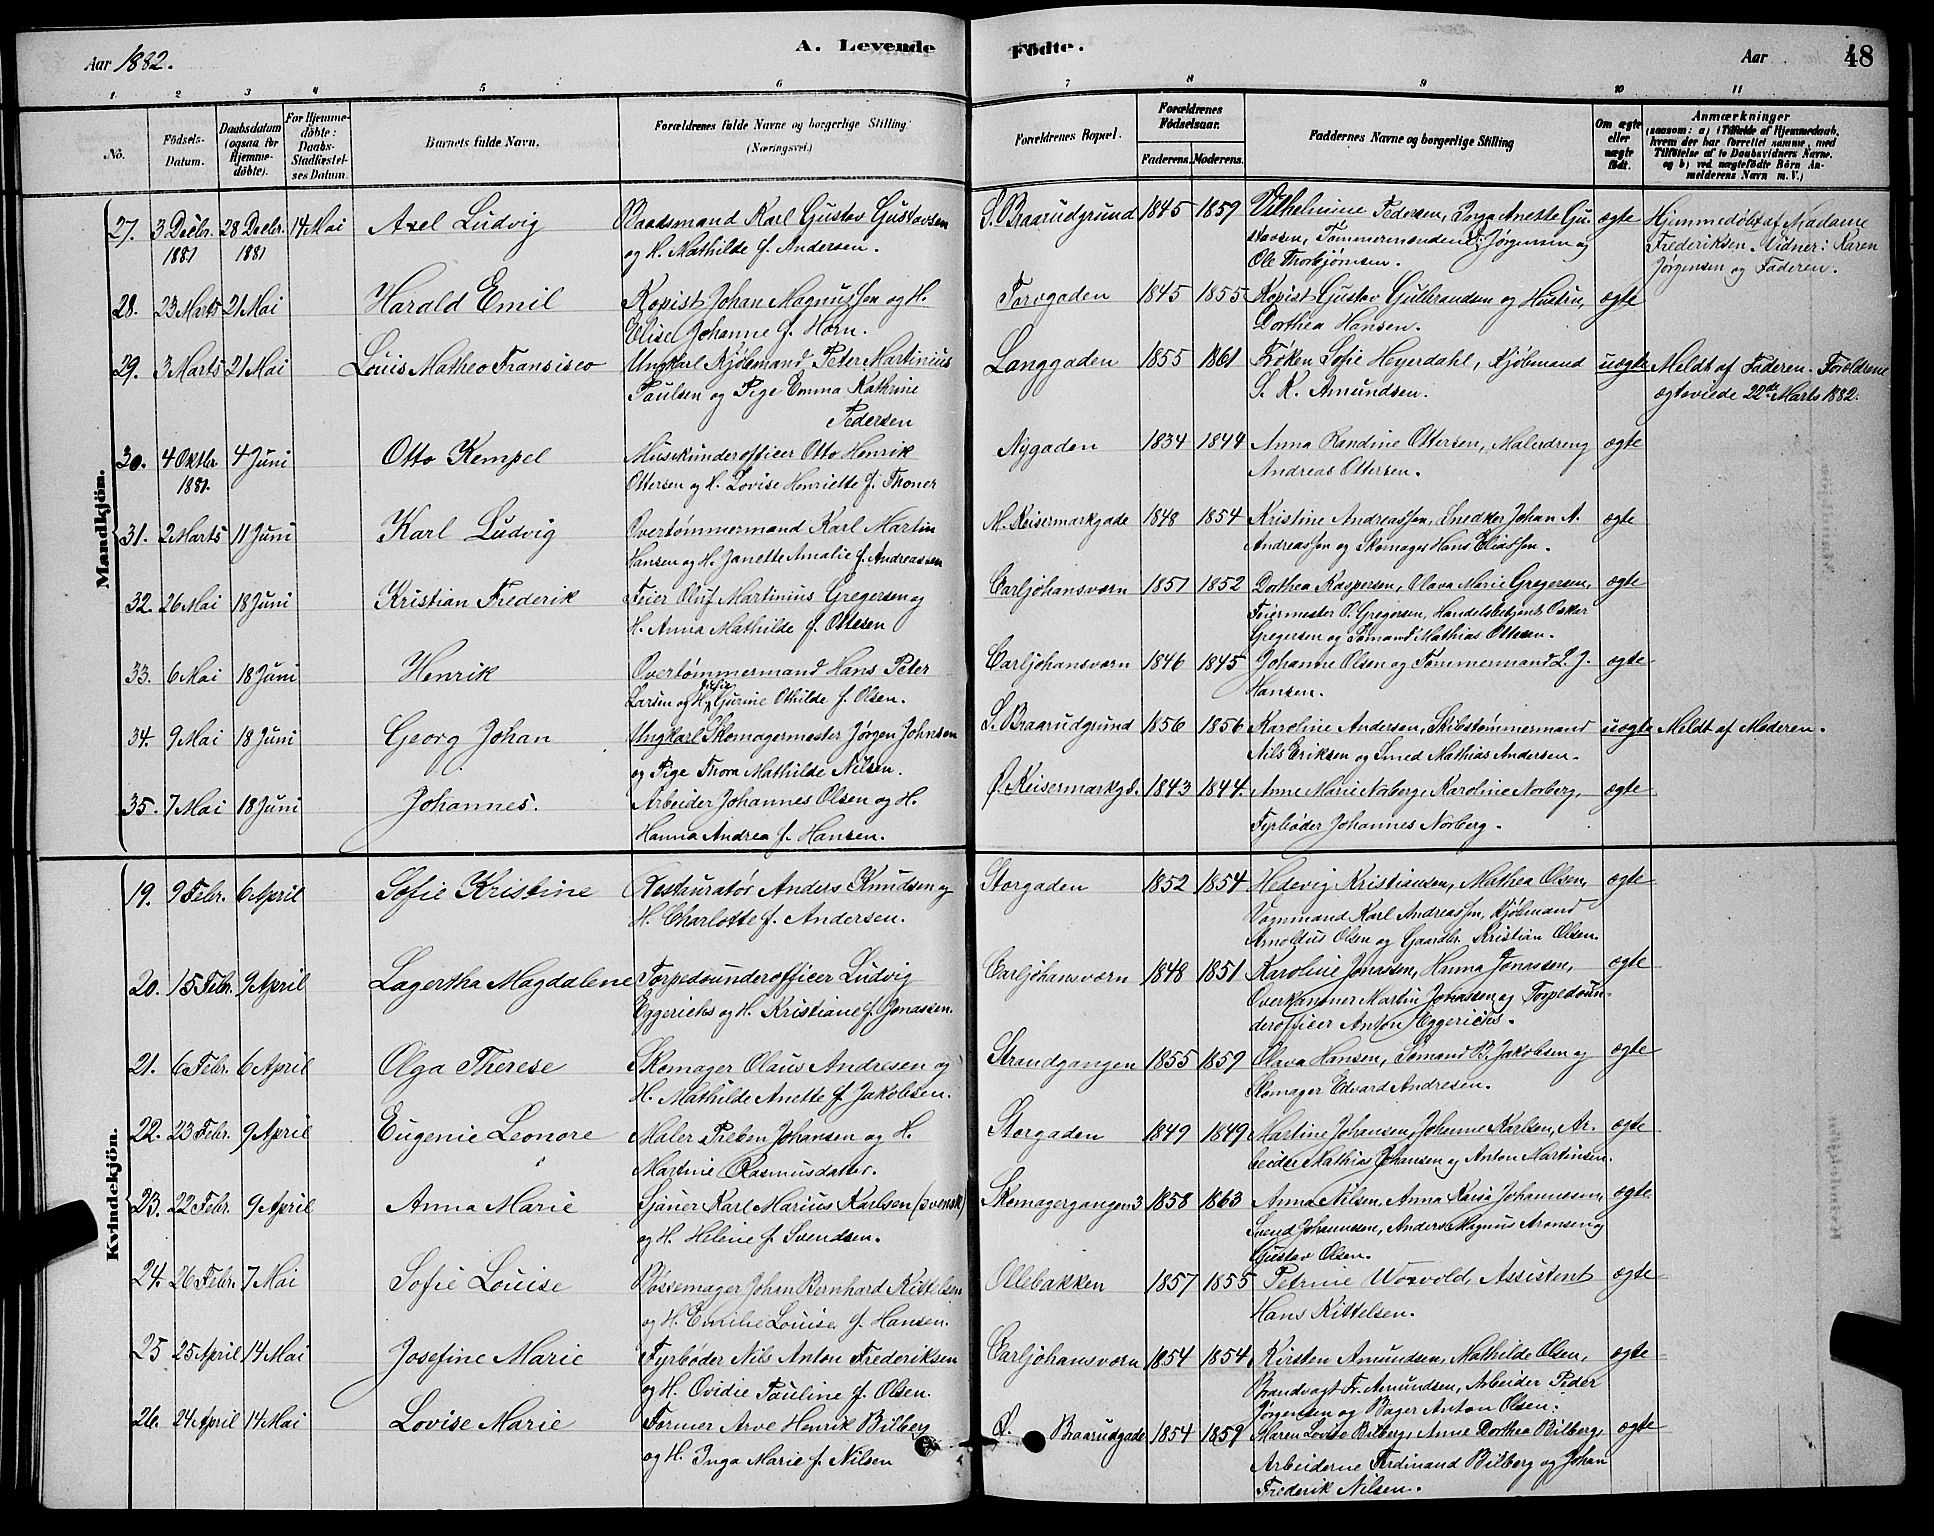 Aar 1882.
A. Levende
Födte.
Aar
48
1 2 3 4 5 6 7 8 9 10 11
No.
Födsels-
Datum.
Daabsdatum
(ogsaa for
Hjemme-
döbte).
For Hjemme-
döbte:
Daabs-
Stadfæstel-
ses Datum.
Barnets fulde Navn.
Forældrenes fulde Navne og borgerlige Stilling.
(Næringsvei.)
Forældrenes Bopæl.
Forældrenes
Födselsaar.
Faderens. Moderens.
Faddernes Navne og borgerlige Stilling
Om ægte
eller
uægte
födt.
Anmærkninger
(saasom: a) i Tilfælde af Hjemmedaab,
hvem der har forrettet samme, med
Tilföielse af to Daabsvidners Navne.
og b) ved uægtefödte Börn An-
melderens Navn m. V.)
Mandkjön.
27. 3 Decbr. 28 Decbr. 14 Mai Axel Ludvig Baadsmand Karl Gustav Gustavsen S. Baarudgrund 1845 1859 Vilhelmine Pedersen, Inga Anette Gu- ægte Hjemmedöbt af Madame
1881 1881 og H. Mathilde f. Andersen. stavsen, Tømmermændene Jørgensen og Frederiksen. Vidner: Karen
Ole Thorbjørnsen. Jørgensen og Faderen.
28. 23 Marts 21 Mai Harald Emil Kopist Johan Magnussen og H. Torvgaden 1845 1855 Kopist Gustav Gulbrandsen og Hustru, ægte
Elise Johanne f. Horn. Dorthea Hansen.
29. 3 Marts 21 Mai Louis Matheo Fransisco Ungkarl Kjøbmand Peter Martinius Langgaden 1855 1861 Frøken Sofie Heyerdahl, Kjøbmand uægte Meldt af Faderen. Forældrene
Paulsen og Pige Emma Kathrine S. K. Amundsen. ægteviede 22de Marts 1882.
Pedersen
30. 4 Oktbr. 4 Juni Otto Kempel Musikunderofficer Otto Henrik Nygaden 1834 1844 Anna Randine Ottersen, Malerdreng ægte
1881. Ottersen og H. Lovise Henriette f. Thoner Andreas Ottersen.
31. 2 Marts 11 Juni Karl Ludvig Overtømmermand Karl Martin M. Keisermarkgade 1848 1854 Kristine Andreassen, Snedker Johan A. ægte
Hansen og H. Janette Amalie f. Andreassen Andreassen og Skomager Hans Eliassen.
32. 26 Mai 18 Juni Kristian Frederik Feier Oluf Martinius Gregersen og Carljohansværn 1851 1852 Dorthea Kaspersen, Olava Marie Gregersen, ægte
H. Anna Mathilde f. Ottesen Feiermester O. Gregersen, Handelsbetjent Oskar
Gregersen og Sømand Mathias Ottesen.
33. 6 Mai 18 Juni Henrik Overtømmermand Hans Peter Carljohansværn 1846 1845 Johanne Olsen og Tømmermand L. J. ægte
Larsen og H. Gurine Othilde f. Olsen. Hansen.
34. 9 Mai 18 Juni Georg Johan Ungkarl Skomagermester Jørgen Johnsen S. Baarudgrund 1856 1856 Karoline Andersen, Skibstømmermand uægte Meldt af Moderen.
og Pige Thora Mathilde Nilsen. Nils Eriksen og Smed Mathias Andersen.
35. 7 Mai 18 Juni Johannes. Arbeider Johannes Olsen og H. Ø. Keisermarkgd. 1843 1844. Anne Marie Norberg, Karoline Norberg, ægte
Hanna Andrea f. Hansen. Fyrbøder Johannes Norberg.
Kvindekjön.
19. 9 Febr. 6 April Sofie Kristine Restauratør Anders Knudsen og Storgaden 1852 1854 Hedevig Kristiansen, Mathea Olsen, ægte
H. Charlotte f. Andersen. Vognmand Karl Andreassen, Kjøbmand
Arnoldus Olsen og Gaardbr. Kristian Olsen.
20. 15 Febr. 9 April Lagertha Magdalene Torpedounderofficer Ludvig Carljohansværn 1848 1851 Karoline Jonassen, Hanna Jonassen, ægte
Eggerichs og H. Kristiane f. Jonassen. Overkanoner Martin Jonassen og Torpedoun-
derofficer Anton Eggerichs.
21. 6 Febr. 6 April Olga Therese Skomager Olaus Andresen og Strandgangen 1855 1859 Olava Hansen, Sømand B. Jakobsen og ægte
H. Mathilde Anette f. Jakobsen. Skomager Edvard Andresen.
22. 23 Febr. 9 April Eugenie Leonore Maler Preben Johansen og H. Storgaden 1849 1849 Martine Johansen, Johanne Karlsen, Ar- ægte
Martine Rasmusdatter. beider Mathias Johansen og Anton Martinsen.
23. 22 Febr. 9 April Anna Marie Sjauer Karl Marius Karlsen (svensk) Skomagergangen 3 1858 1863 Anna Nilsen, Anna Kaisa Johannesen, ægte
og H. Helene f. Svendsen. Svend Johannesen, Anders Magnus Aronsen og
Gustav Olsen.
24. 26 Febr. 7 Mai Sofie Louise Bøssemager Johan Bernhard Kittelsen Ollebakken 1857 1855 Petrine Worvold, Assistent ægte
og H. Emilie Louise f. Hansen. Hans Kittelsen.
25 25 April 14 Mai Josefine Marie Fyrbøder Nils Anton Frederiksen Carljohansværn 1854 1854 Kirsten Amundsen, Mathilde Olsen, ægte
og H. Ovidie Pauline f. Olsen. Brandvagt Fr. Amundsen, Arbeider Peder
Jørgensen og Bager Anton Olsen.
26. 24 April 14 Mai Lovise Marie Former Arve Henrik Bilberg Ø. Baarudgade 1854 1859 Maren Lovise Bilberg, Anne Dorthea Bilberg, ægte
og H. Inga Marie f. Nilsen Arbeiderne Ferdinand Bilberg og Johan
Frederik Nilsen.